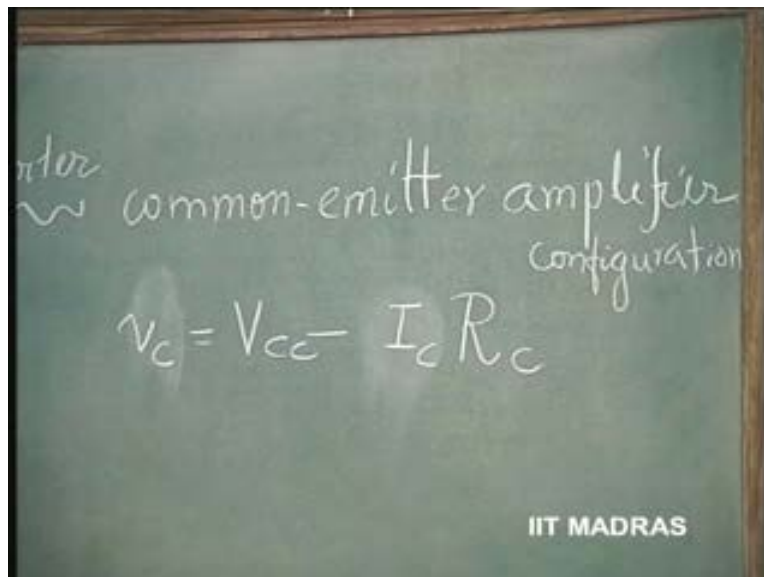 rter
common-emitter amplifier
configuration
v_c = V_cc - I_c R_c
IIT MADRAS